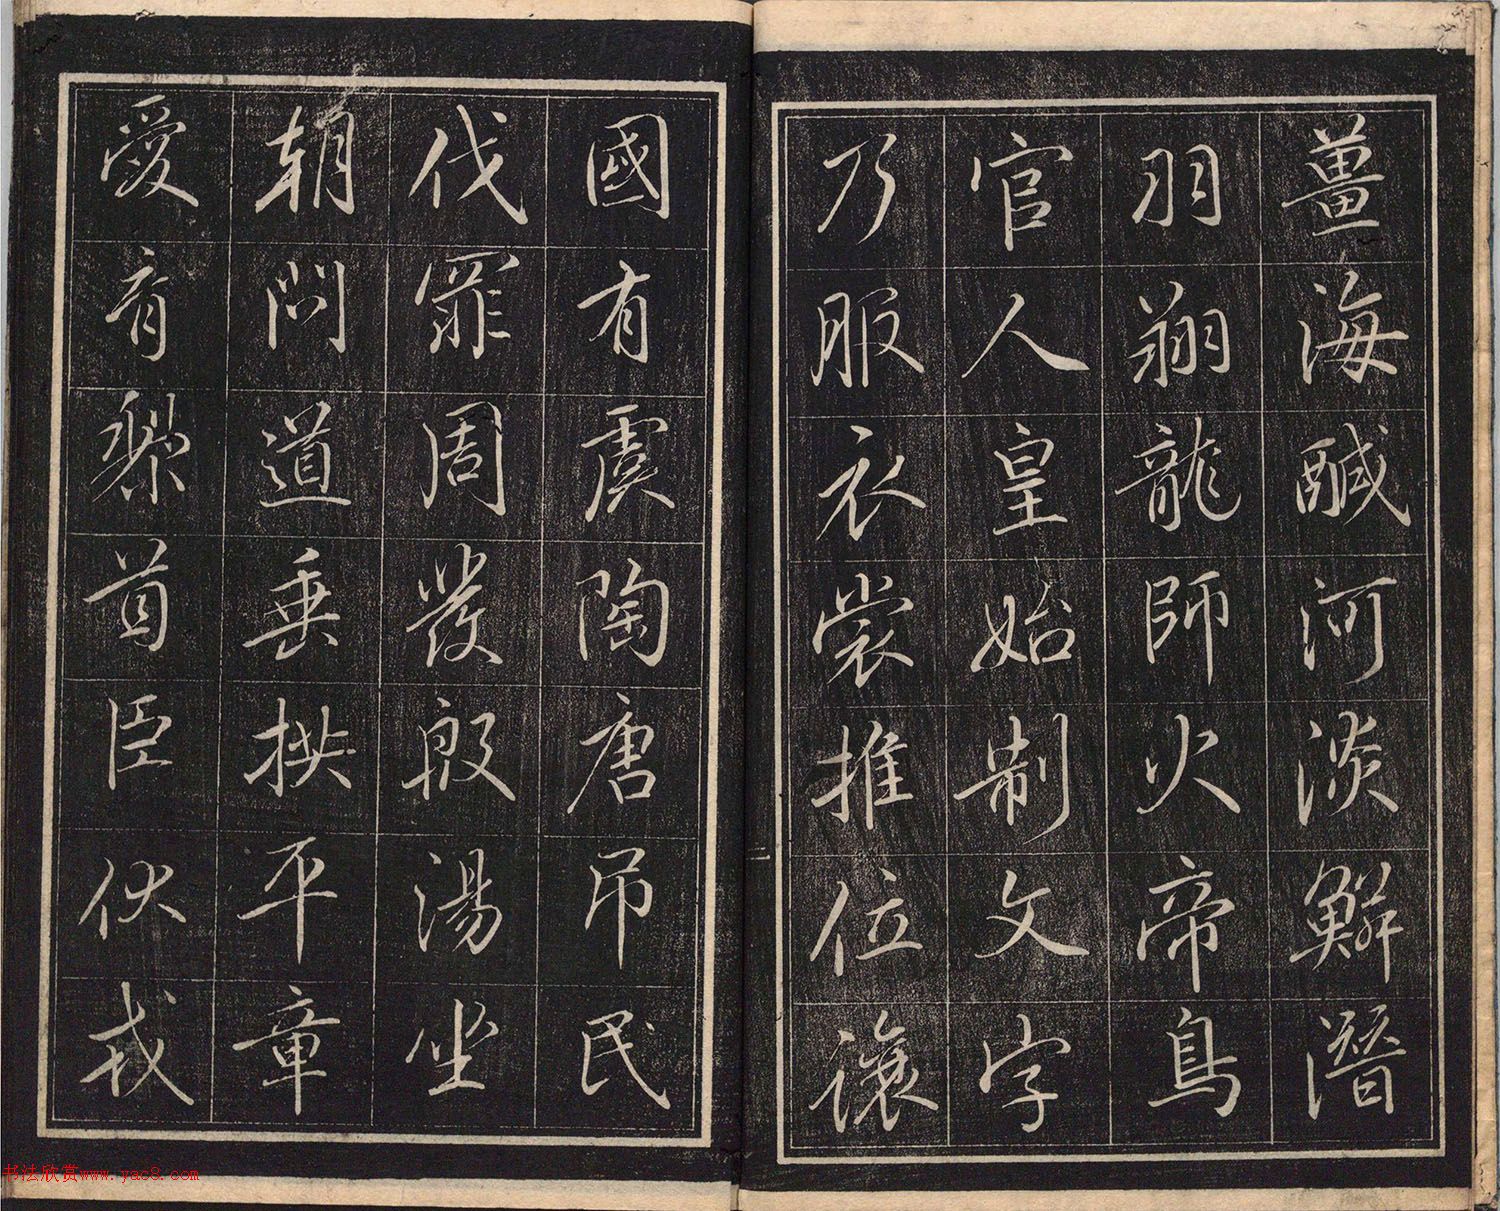 薑海鹹河淡鱗潛
羽翔龍師火帝鳥
官人皇始制文字
乃服衣裳推位讓
國有虞陶唐吊民
伐罪周發殷湯坐
朝問道垂拱平章
愛育黎首臣伏戎
书法欣赏www.yac8.com